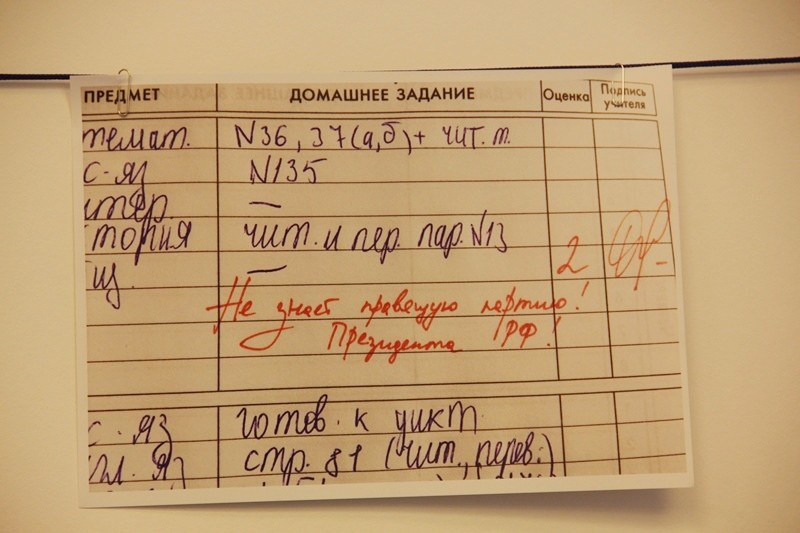 ПРЕДМЕТ ДОМАШНЕЕ ЗАДАНИЕ Оценка Подпись учителя
темат. N36, 37(а,б)+ чит. т.
с-яз N135
итер. —
тория чит. и пер. пар. N13
щ. — 2
Не знает правящую партию!
Президента РФ!
с. яз готов. к дикт
гл. яз стр. 81 (чит., перев.)